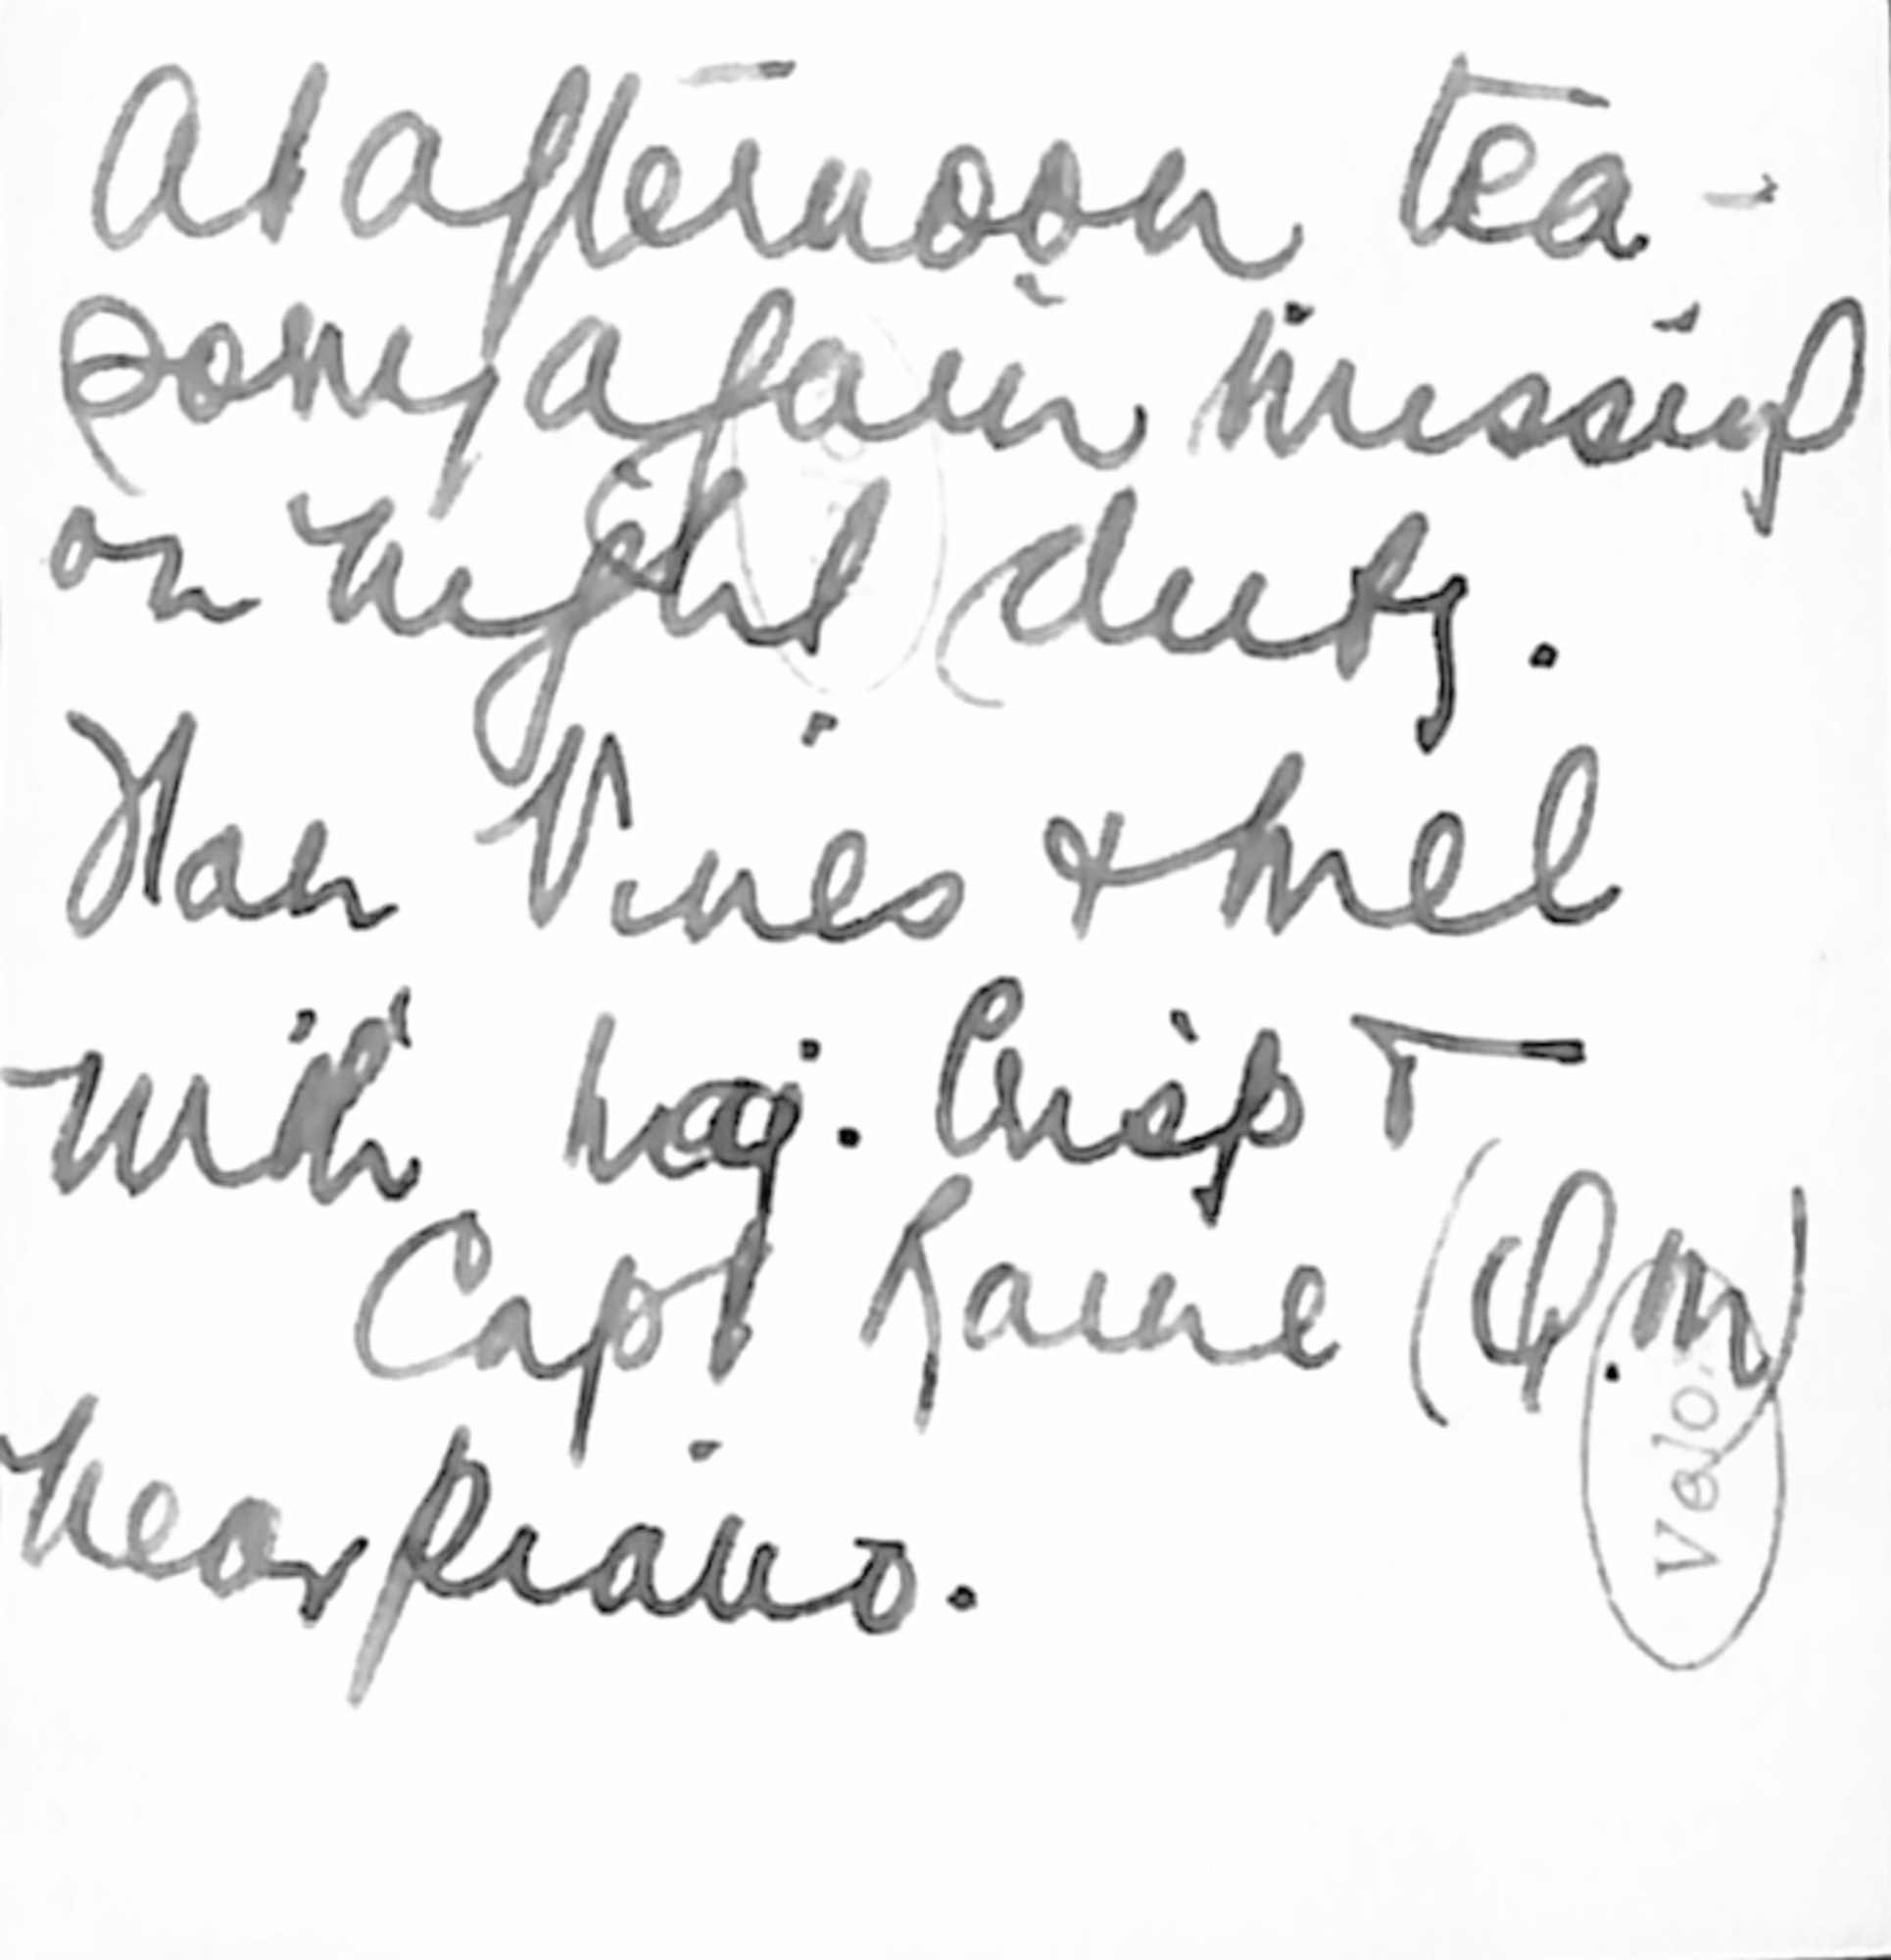 At afternoon Tea -
Pony again missing
on night duty.
Nan Vines & Mel
with Maj. Crisp +
Capt Raine (Q.M)
near piano.
Velox